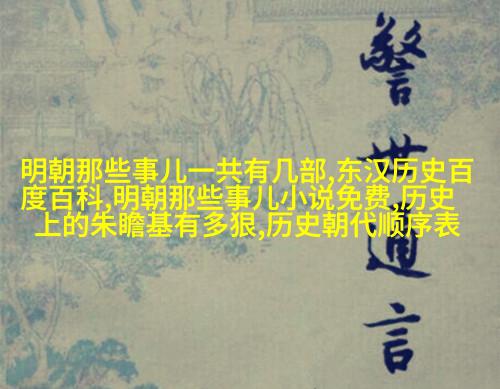 明朝那些事儿一共有几部,东汉历史百
度百科,明朝那些事儿小说免费,历史
上的朱瞻基有多狠,历史朝代顺序表
警世通言